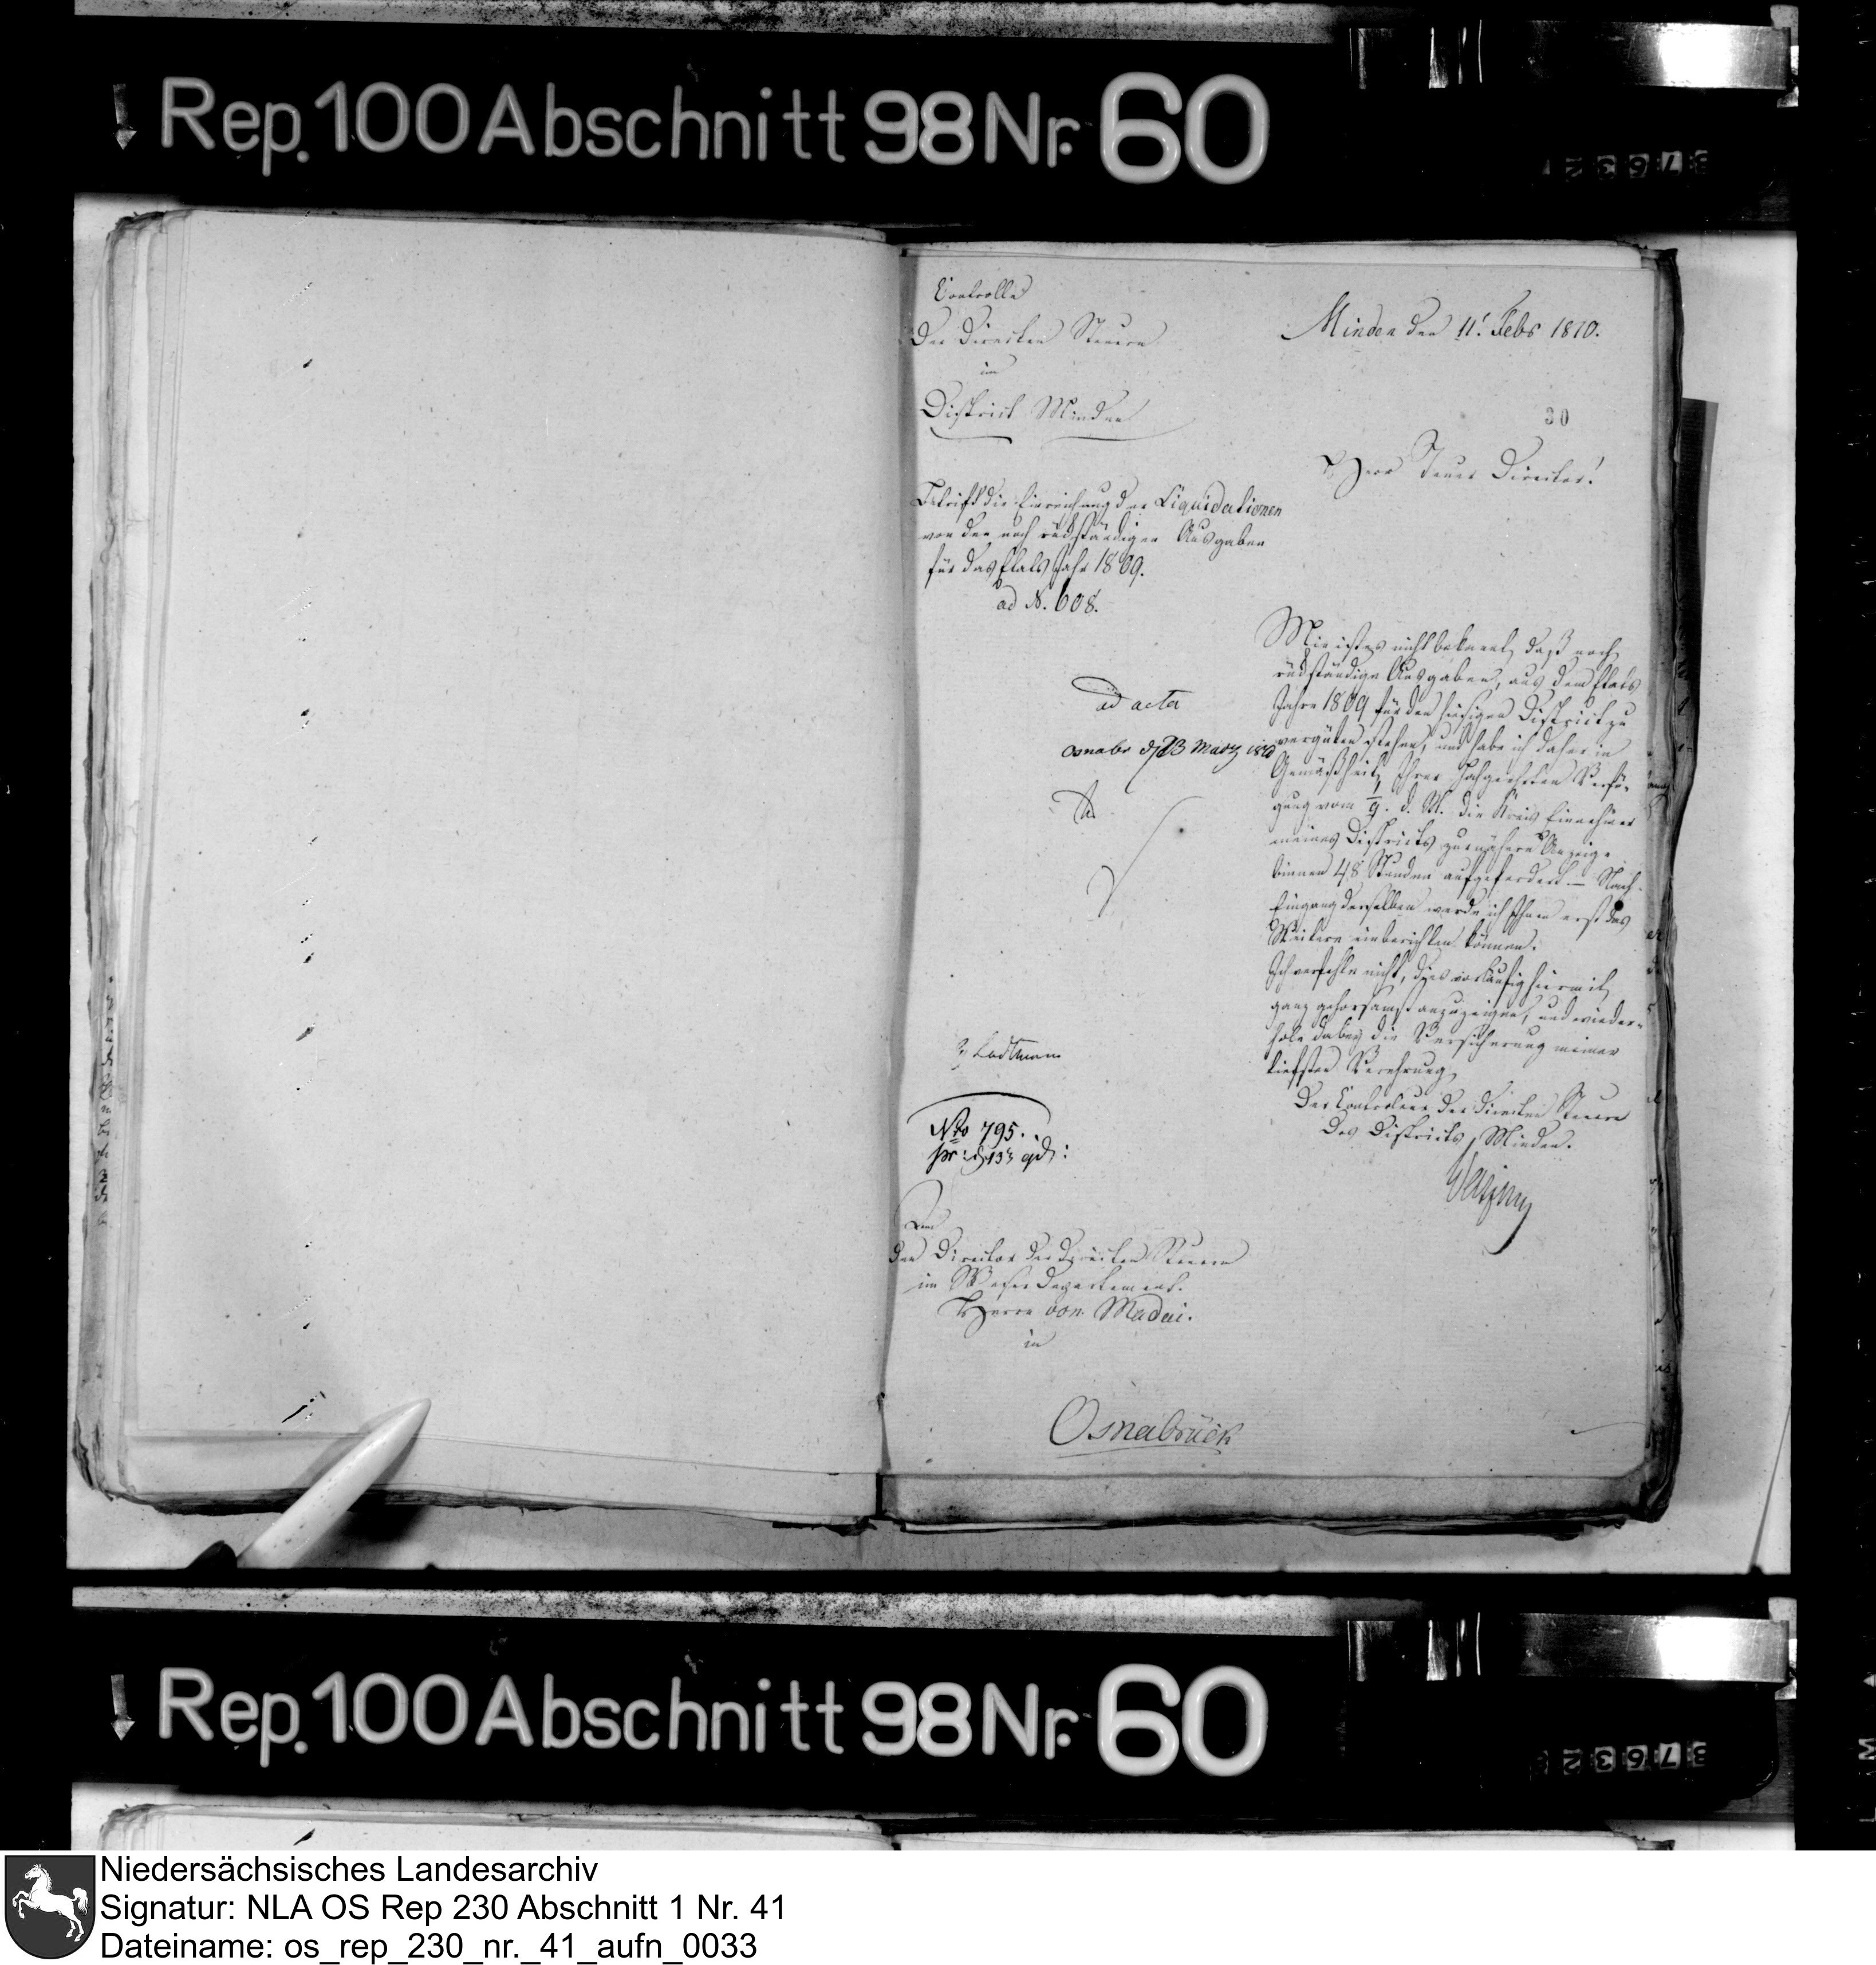 Rep. 100 Abschnitt 98 Nr. 60
Controlle
Der Directen Steuern
im
District Minden
Minden den 11t. Febr 1810.
30
Herr Steuer Director!
Betrifft die Einreichung der Liquidationen
von den noch rückständigen Ausgaben
für das Etats Jahr 1809.
ad N. 608.
Mir ist es nicht bekannt, daß noch
rückständige Ausgaben, aus dem Etats
Jahre 1809 für den hiesigen District zu
vergüten stehen, und habe ich daher in
Gemäßheit Ihrer hochgeehrten Verfü-
gung vom 9. d. M. die Kreis Einnehmer
meines Districts zur nähern Anzeige
binnen 48 Stunden aufgefordert. – Nach
Eingang derselben werde ich Ihnen erst das
Weitere einberichten können.
Ich verfehle nicht, dies vorläufig hiermit
ganz gehorsamst anzuzeigen, und wieder-
hole dabey die Versicherung meiner
tiefsten Verehrung,
Der Controleur der directen Steuern
Des Districts Minden.
ad acta
Osnabr d 23 März 1810
Lodtmann
Nro 795.
pr: d 13t
An
den Director der Directen Steuern
im Weser Departement.
Herrn von Madai.
in
Osnabrück
Rep. 100 Abschnitt 98 Nr. 60
Niedersächsisches Landesarchiv
Signatur: NLA OS Rep 230 Abschnitt 1 Nr. 41
Dateiname: os_rep_230_nr._41_aufn_0033